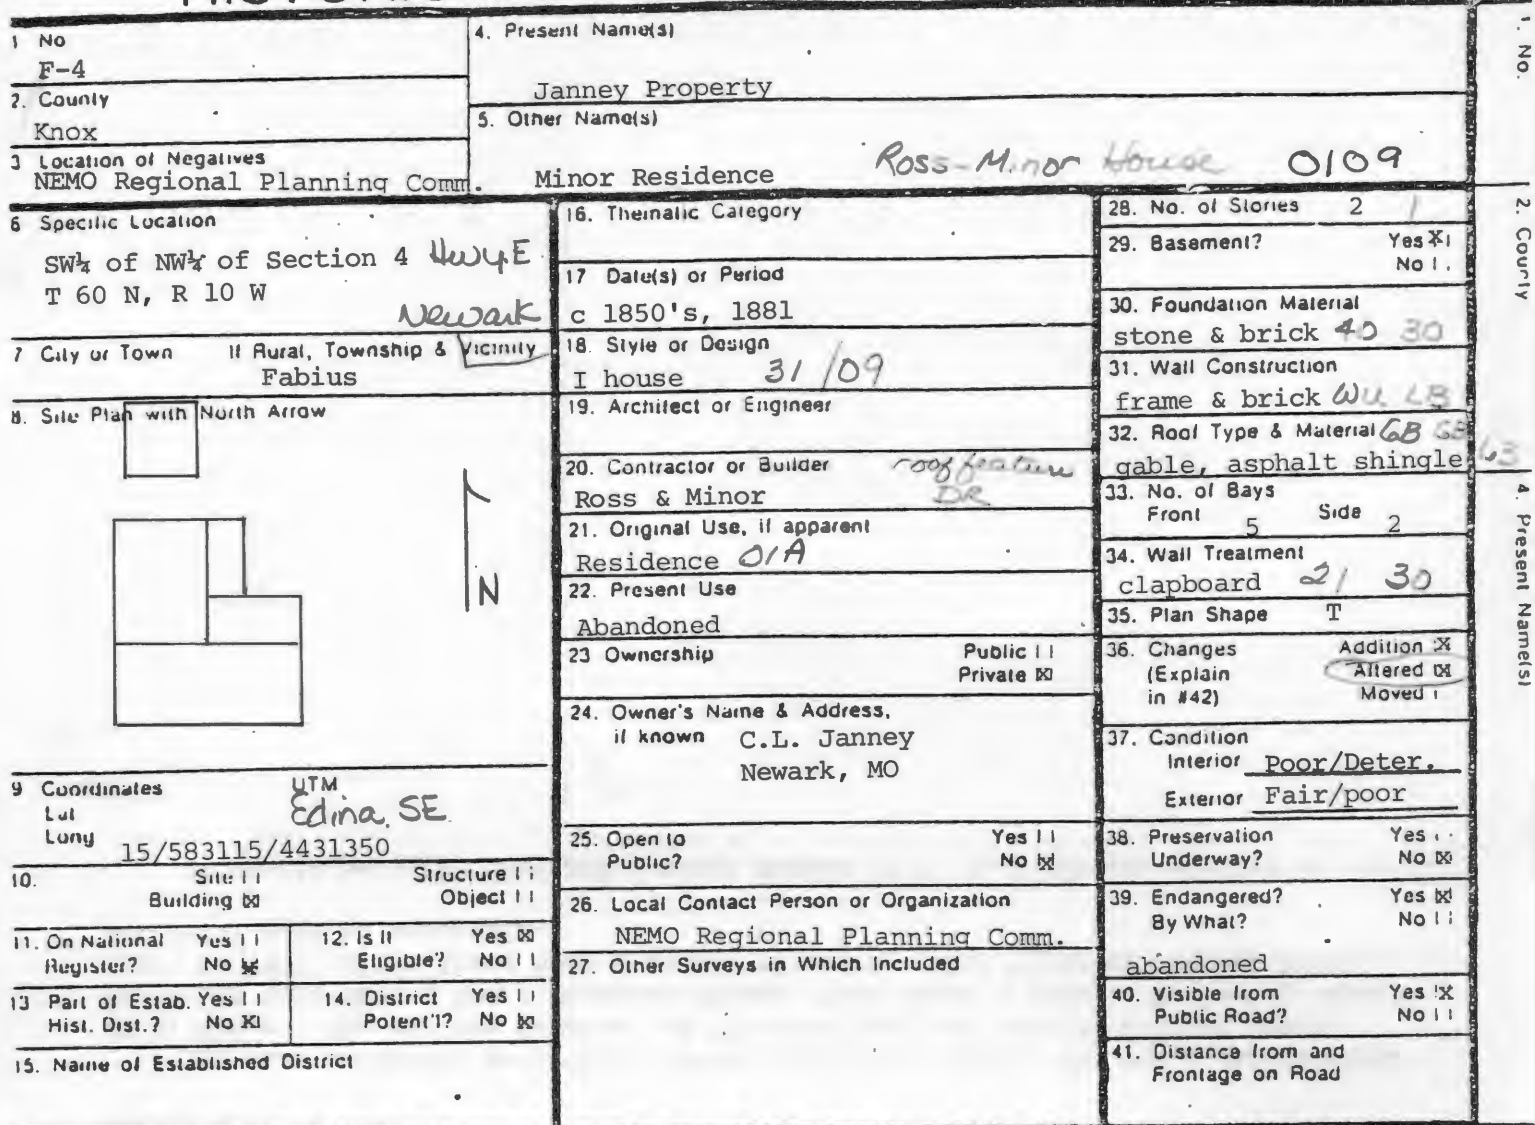 1 No
F-4
2. County
Knox
3 Location of Negatives
NEMO Regional Planning Comm.
4. Present Name(s)
Janney Property
5. Other Name(s)
Minor Residence Ross-Minor House 0109
6 Specific Location
SW¼ of NW¼ of Section 4 Hwy E
T 60 N, R 10 W
Newark
7 City or Town If Rural, Township & Vicinity
Fabius
8. Site Plan with North Arrow
N
9 Coordinates UTM
Lat Edina, SE
Long
15/583115/4431350
10. Site Structure
Building X Object
11. On National Yes
Register? No X
12. Is It Yes X
Eligible? No
13 Part of Estab. Yes
Hist. Dist.? No X
14. District Yes
Potent'l? No X
15. Name of Established District
16. Thematic Category
17 Date(s) or Period
c 1850's, 1881
18. Style or Design
I house 31/09
19. Architect or Engineer
20. Contractor or Builder roof feature
Ross & Minor DR
21. Original Use, if apparent
Residence 01A
22. Present Use
Abandoned
23 Ownership Public
Private X
24. Owner's Name & Address,
if known C.L. Janney
Newark, MO
25. Open to Yes
Public? No X
26. Local Contact Person or Organization
NEMO Regional Planning Comm.
27. Other Surveys in Which Included
28. No. of Stories 2
29. Basement? Yes X
No
30. Foundation Material
stone & brick 40 30
31. Wall Construction
frame & brick WU LB
32. Roof Type & Material GB GB
gable, asphalt shingle 63
33. No. of Bays
Front 5 Side 2
34. Wall Treatment
clapboard 21 30
35. Plan Shape T
36. Changes Addition X
(Explain Altered X
in #42) Moved
37. Condition
Interior Poor/Deter.
Exterior Fair/poor
38. Preservation Yes
Underway? No X
39. Endangered? Yes X
By What? No
abandoned
40. Visible from Yes X
Public Road? No
41. Distance from and
Frontage on Road
1. No.
2. County
4. Present Name(s)